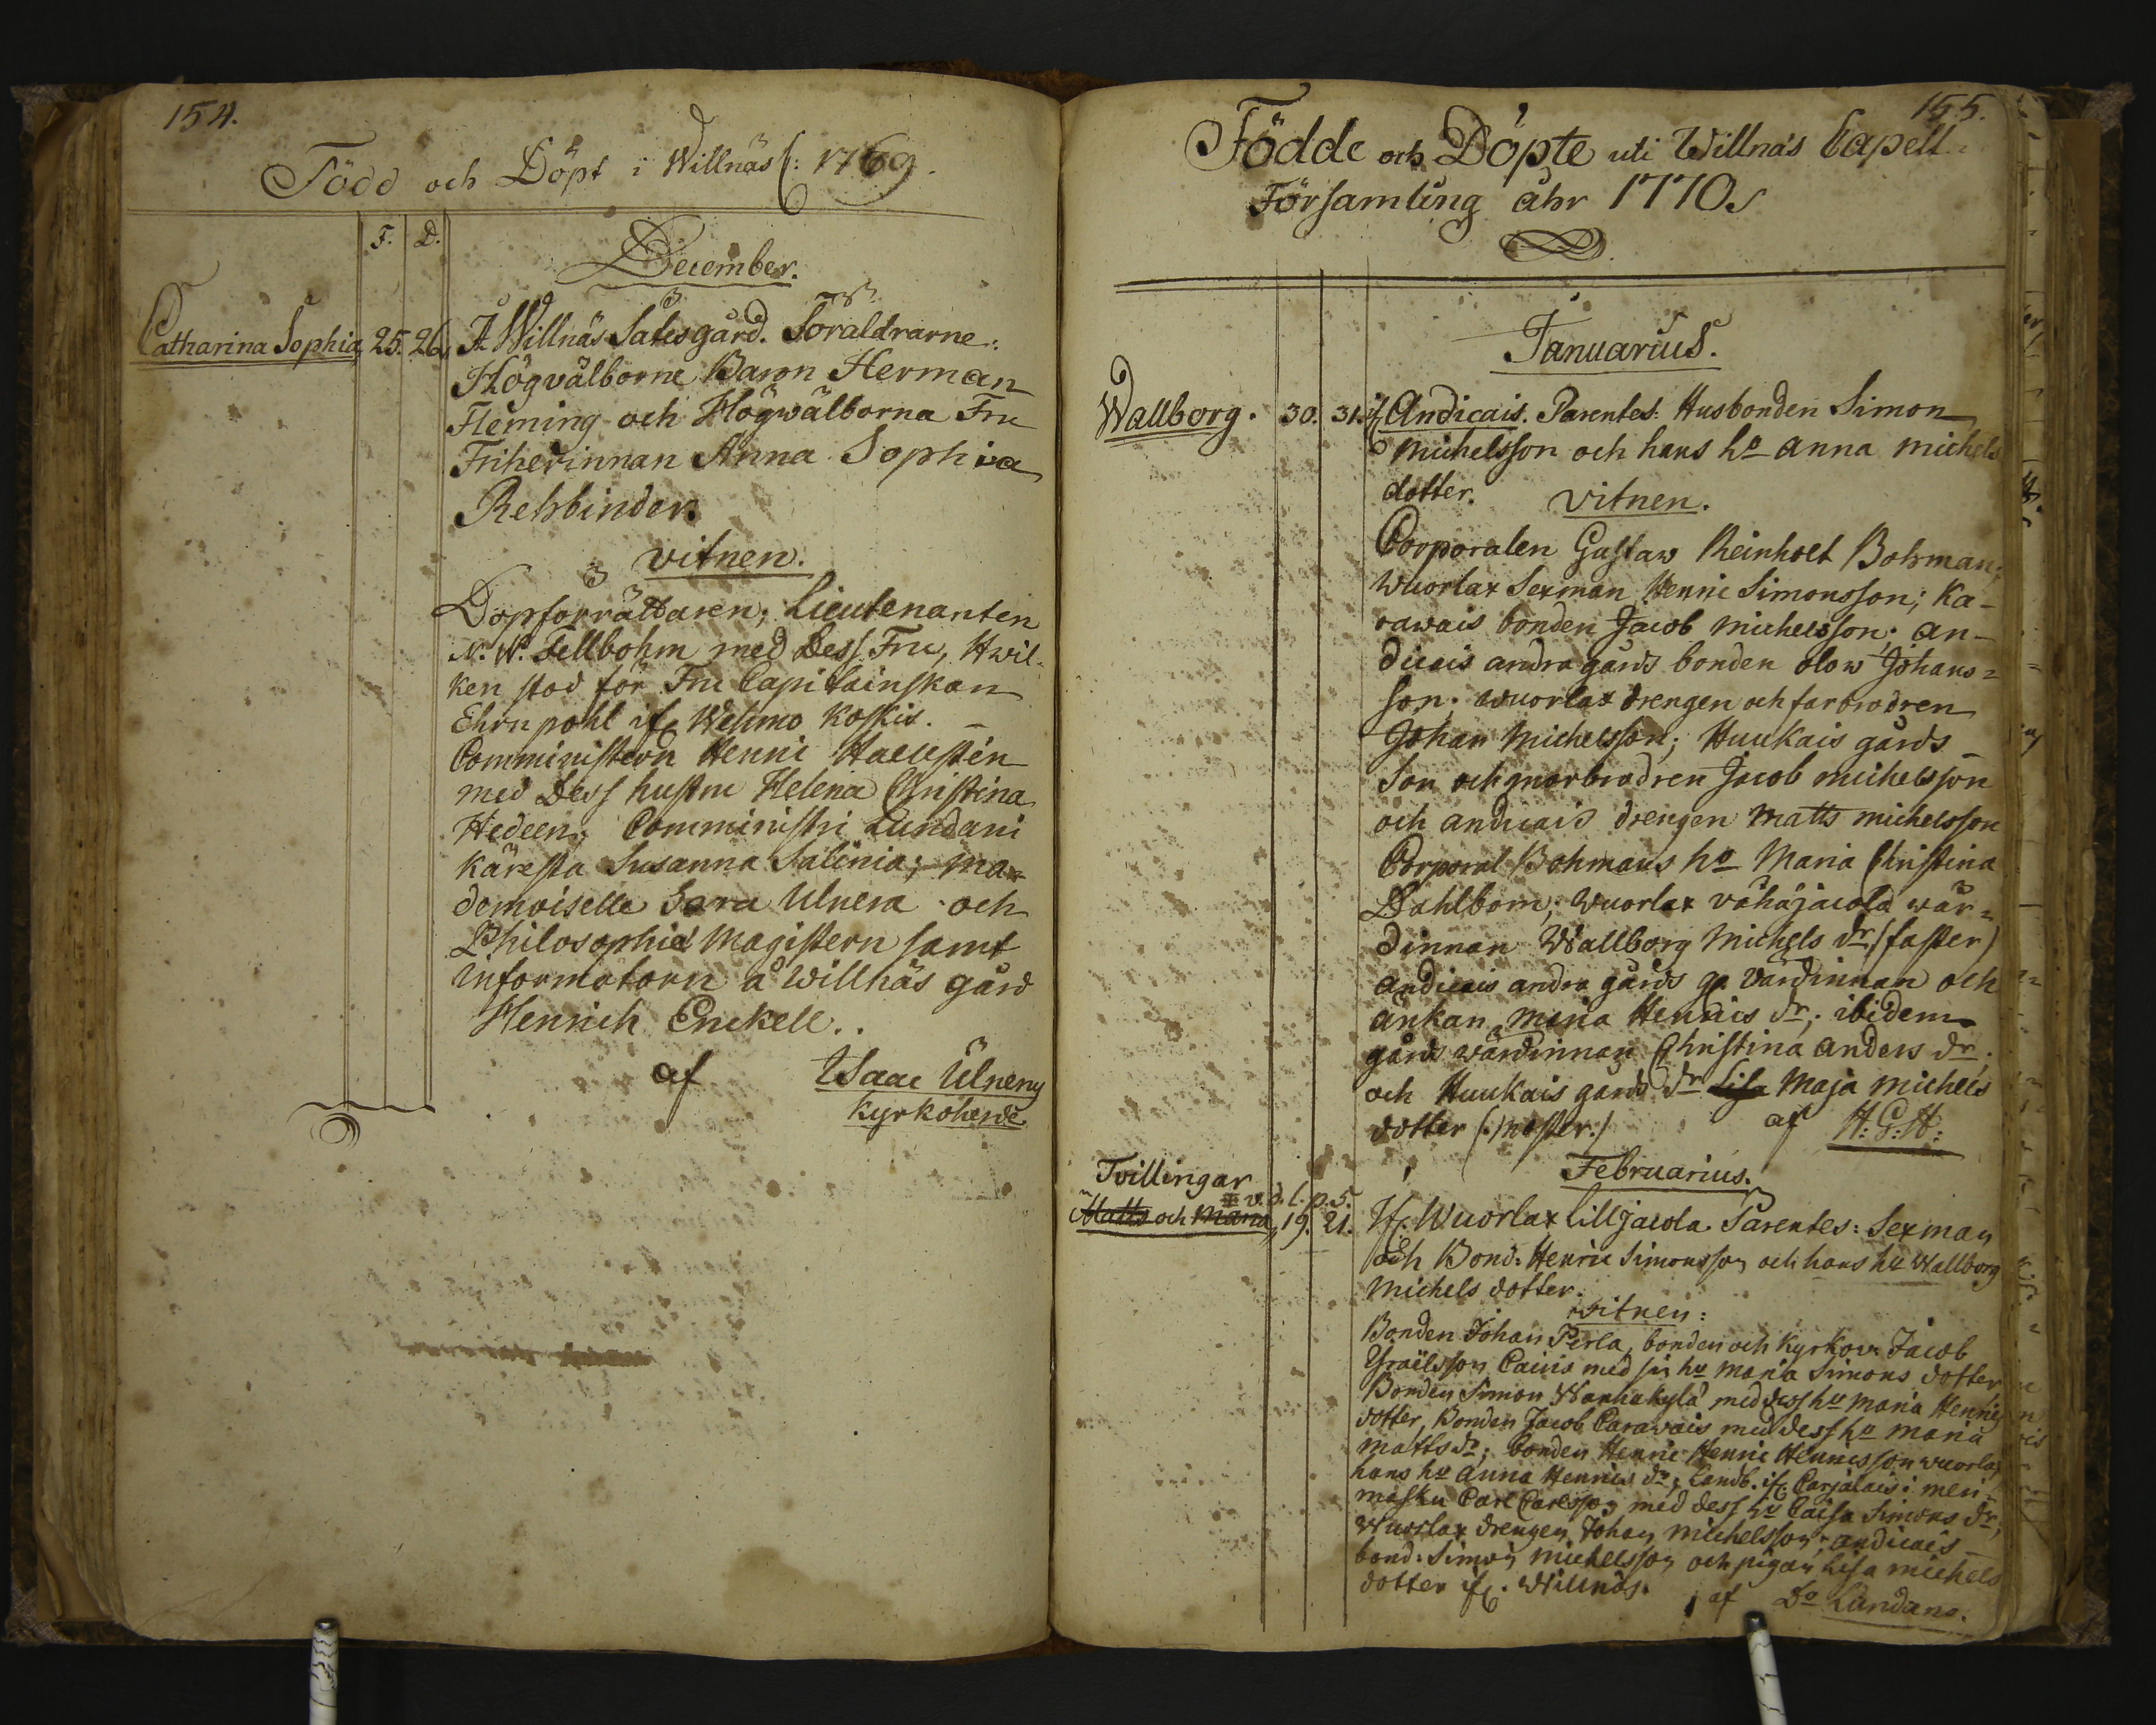 154.
Född och Döpt i Willnäs C: 1769.
F. D.
December.
Catharina Sophia, 25. 26. Å Willnäs Sätesgård. Föräldrarne:
Högvälborne Baron Herman
Fleming och Högwälborna Fru
Friherinnan Anna Sophia
Rehbinder.
vitnen.
Dopförrättaren; Lieutenanten
N. N. Fellbohm med Dess Fru, Hwil-
ken stod för Fru Capitainskan
Ehrnpohl if. Wehmo Koskis.
Comministern Henric Haeusten
med Dess hustru Helena Christina
Hedeen; Comministri Lundani
käresta Susanna Salinia; ma-
demoiselle Sara Ulnera och
Philosophiæ Magistern samt
informatorn å willnäs gård
Henrich Enckell..
af Isaac Ulneru
Kyrkoherde
155.
Födde och Döpte uti Willnäs Capell
Församling åhr 1770
Januarius.
Wallborg. 30. 31. if. Andicais. Parentes: Husbonden Simon
Michelsson och hans ho anna michels
dotter. vitnen.
Corporalen Gustaw Reinholt Bohman;
Wuorlax Sexman Henric Simonsson; Ka-
rawais bonden Jacob michelsson; an-
dicais andra gårds bonden olow Johans=
son. wuorlax drengen och farbrodren
Johan Michelsson; Huukais gårds
Son och morbrodren Jacob michelsson
och andicais drengen Matts michelsson
Corporal Bohmans ho Maria Christina
Dahlbom; Wuorlax vähäjacola wär=
dinnan Wallborg Michels dr. (faster)
andicais andra gårds g. värdinnan och
änkan Maria Henrics dr; ibidem
gårds wärdinnan Christina anders dr.
och Huukais gårds dr Lisa Maja michels
dotter (: moster:) af H: G: H:
Februarius.
Tvillingar
v. d. l. p. 5.
Matts och Maria, 19. 21. If. Wuorlax Lilljacola. Parentes: Sexman
och Bond: Henric Simonsson och hans hu Wallborg
Michels dotter.
witnen:
Bonden Johan Perla, bonden och kyrkov. Jacob
Israëlsson Cainis med sin hu Maria Simons dotter
Bonden Simon Wanhakylä med dess hu Maria Henrics
dotter, Bonden Jacob Carawais med dess hu Maria
matts dr; bonden Henric Henric Henricsson wuorlax
hans hu Anna Henrics dr; Landb. if. Carjalais i meri-
masku Carl Carlsson med dess hu Caisa Simons dr;
Wuorlax drengen Johan michelsson; andicais
bond: Simon michelsson och pigan Lisa michels
dotter if. Willnäs. af Do Lundano.